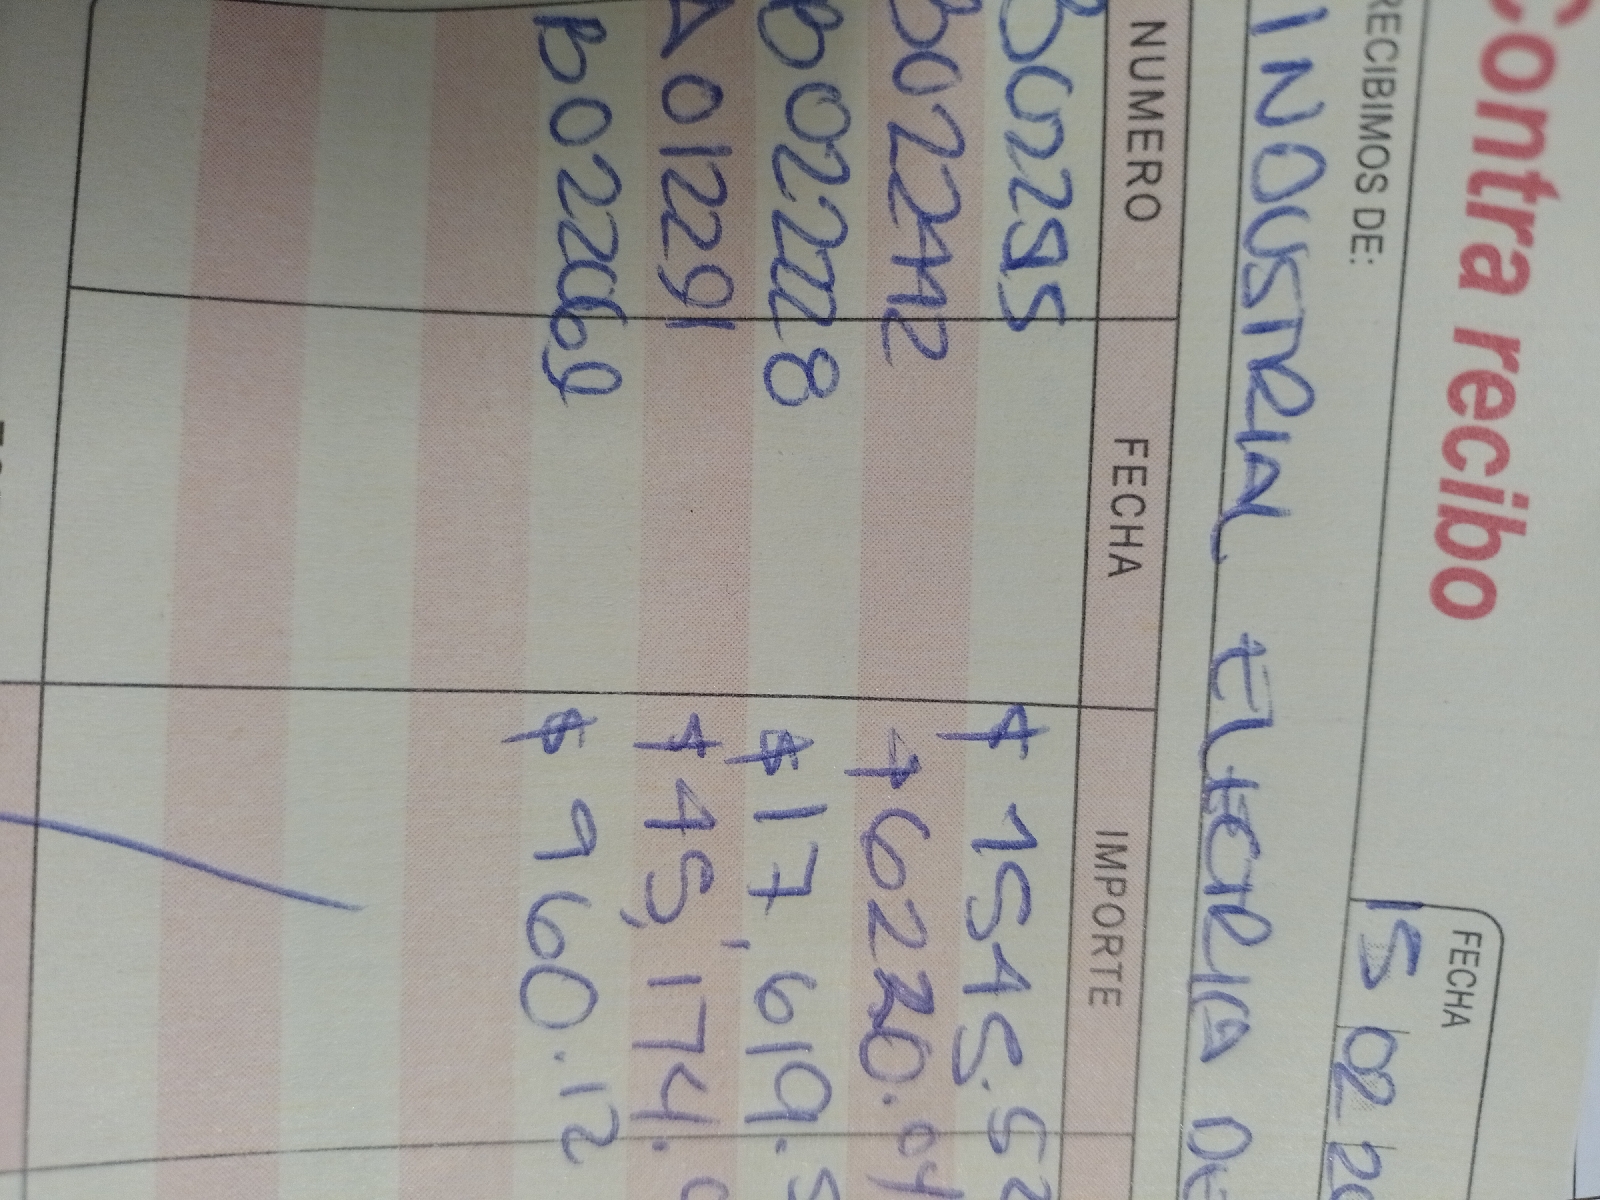 Contra recibo
FECHA
15 02 20
RECIBIMOS DE:
INDUSTRIAL ELECTRICA DE
NUMERO FECHA IMPORTE
B02295 $ 1545.52
B022242 $ 6220.04
B022228 $ 17,619.5
A01291 $ 45,174.
B022069 $ 960.12